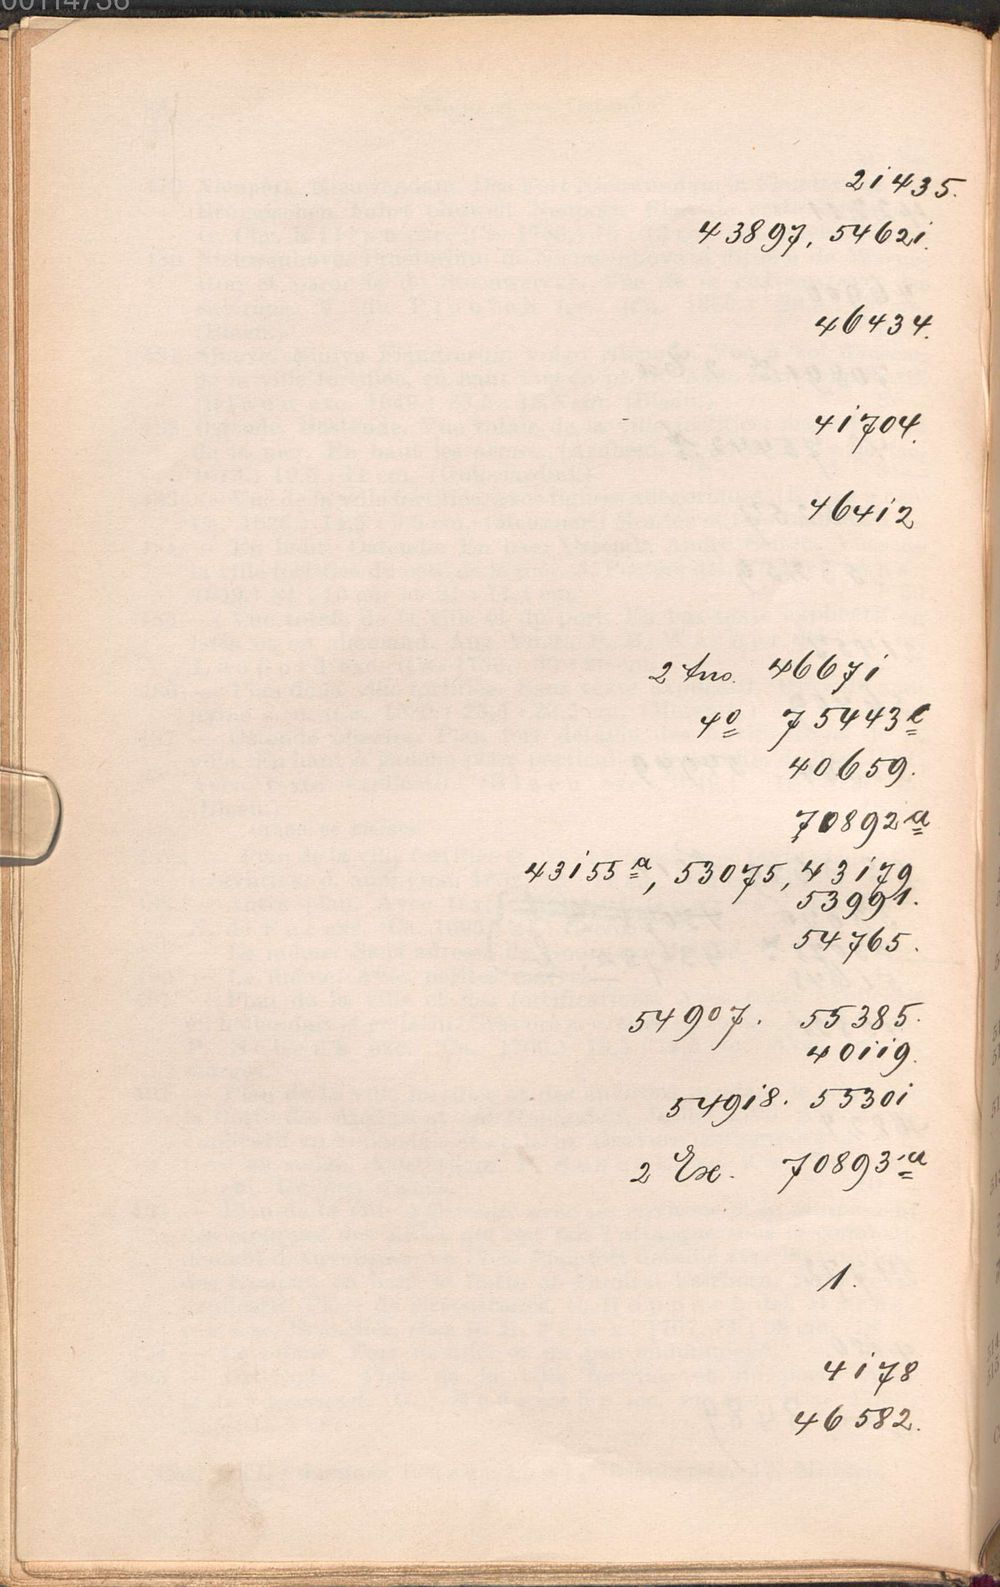 00114756
21435.
43897, 54621.
46434.
41704.
46412
2 46671
4º 75443 c
40659.
70892 a
43155 a, 53075, 43179
53991.
54765.
54907. 55385.
40119.
54918. 55301
2 Ex. 70893 a
1.
4178
46582.